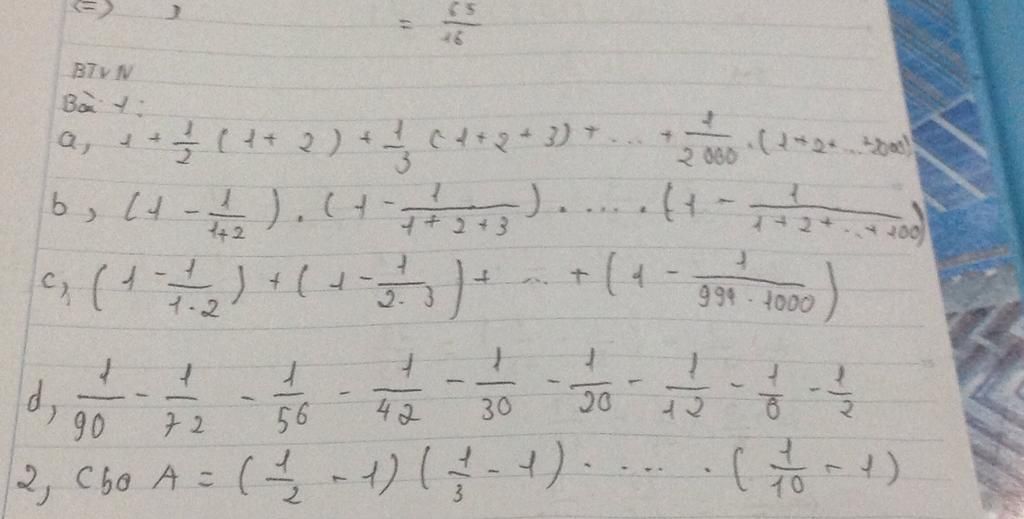 (=) , = 65/16
BTVN
Bài 1:
a, 1 + 1/2 (1 + 2) + 1/3 (1 + 2 + 3) + ... + 1/2000 . (1+2+...+2000)
b, (1 - 1/1+2) . (1 - 1/1+2+3) ..... (1 - 1/1+2+...+100)
c, (1 - 1/1.2) + (1 - 1/2.3) + ... + (1 - 1/999.1000)
d, 1/90 - 1/72 - 1/56 - 1/42 - 1/30 - 1/20 - 1/12 - 1/6 - 1/2
2, Cho A = (1/2 - 1) (1/3 - 1) . .... . (1/10 - 1)